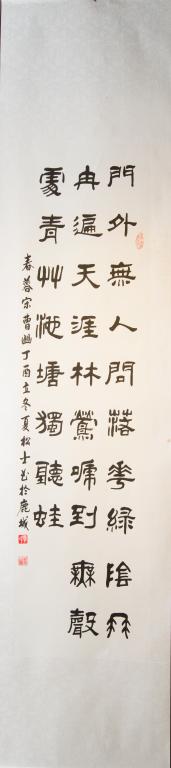 門外無人問落花綠陰冉
冉遍天涯林鶯啼到無聲
處青艸池塘獨聽蛙
春暮宋曹豳丁酉立冬夏松士書於鹿城